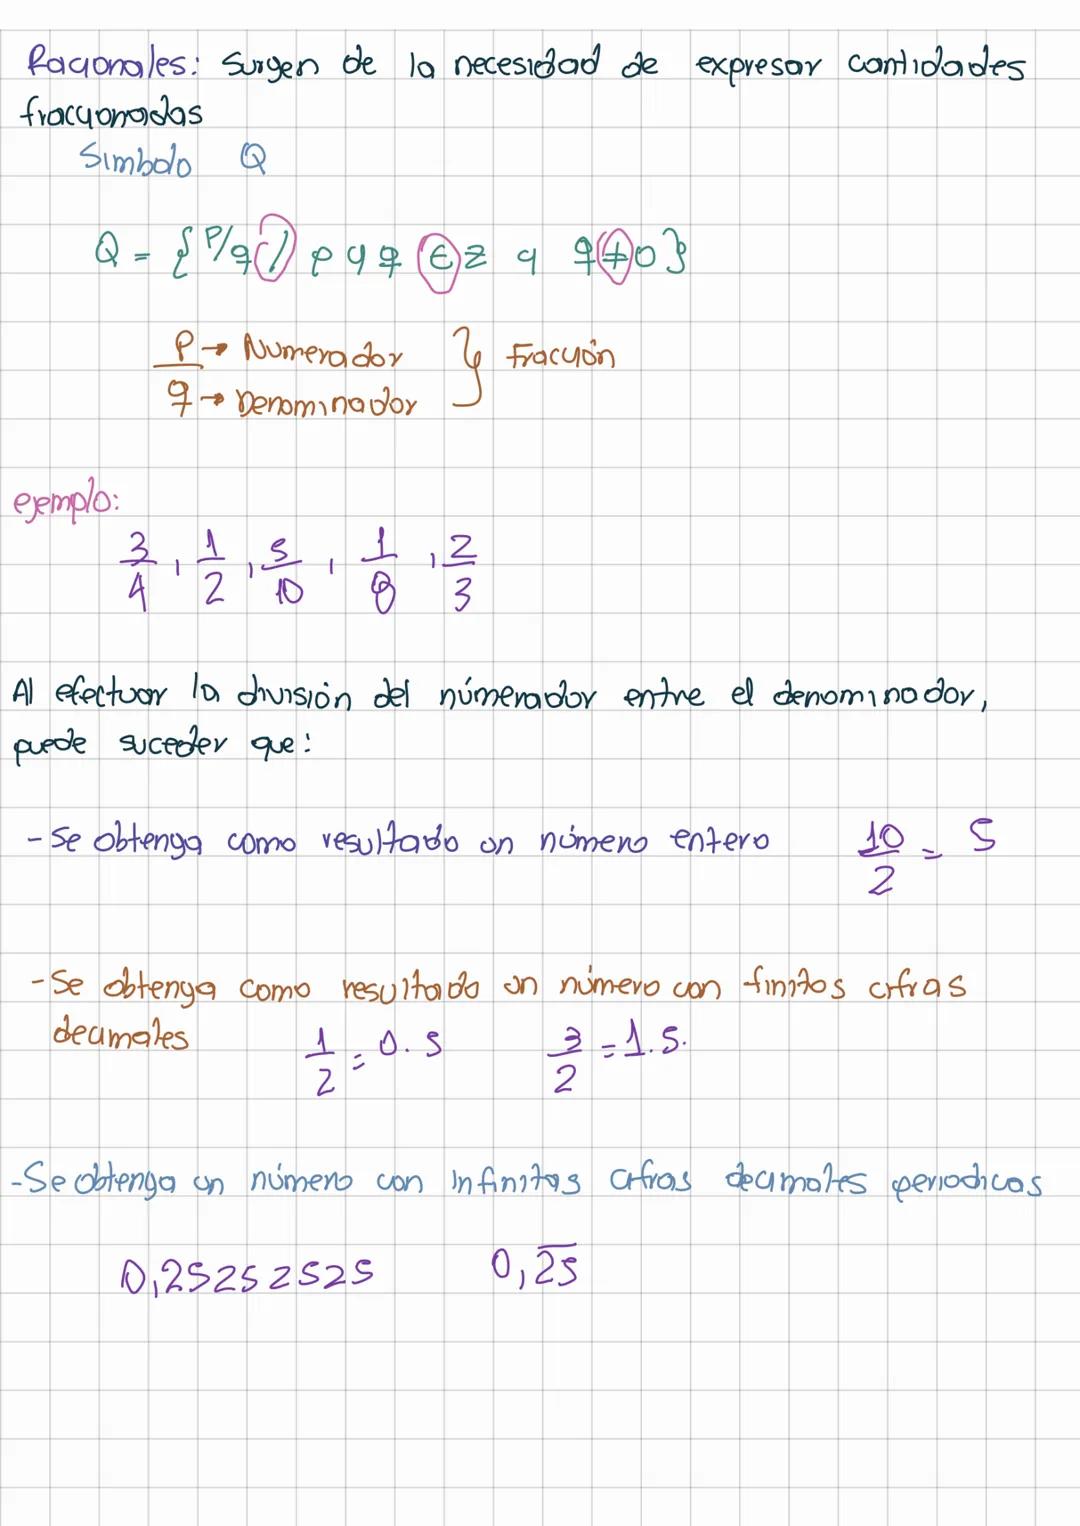 Racionales: Surgen de la necesidad de expresar cantidades
fraccionadas
Simbolo Q
Q = { P/q / p y q ∈ Z y q ≠ 0 }
P → Numerador
q → Denominador } Fracción
ejemplo:
3/4 , 1/2 , 5/10 , 1/8 , 2/3
Al efectuar la división del númerador entre el denominador,
puede suceder que:
- Se obtenga como resultado un número entero 10/2 = 5
- Se obtenga como resultado un número con finitos cifras
decimales 1/2 = 0.5 3/2 = 1.5.
- Se obtenga un número con Infinitas cifras decimales periodicas
0,25252525 0,2̅5̅